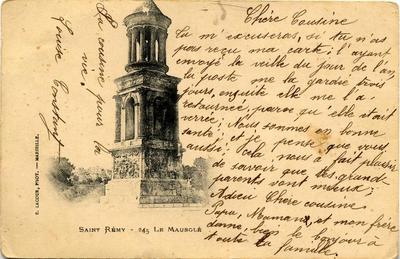 Chère Cousine
Tu m'excuseras, si tu n'as
pas reçu ma carte; l'ayant
envoyé la veille du jour de l'an
la poste me la gardée trois
jours, ensuite elle me l'a
retournée, parce qu'elle était
verrée; Nous sommes en bonne
santé, et je pense que vous
aussi; Cela nous a fait plaisir
de savoir que tes grand-
parents vont mieux;
Adieu Chère cousine
Papa, Maman, et mon frère
donne bien le bonjour à
toute ta famille.
Ta cousine pour la
vie.
Louise Constant
E. LACOUR, PHOT. — MARSEILLE.
SAINT RÉMY - 245 LE MAUSOLÉ